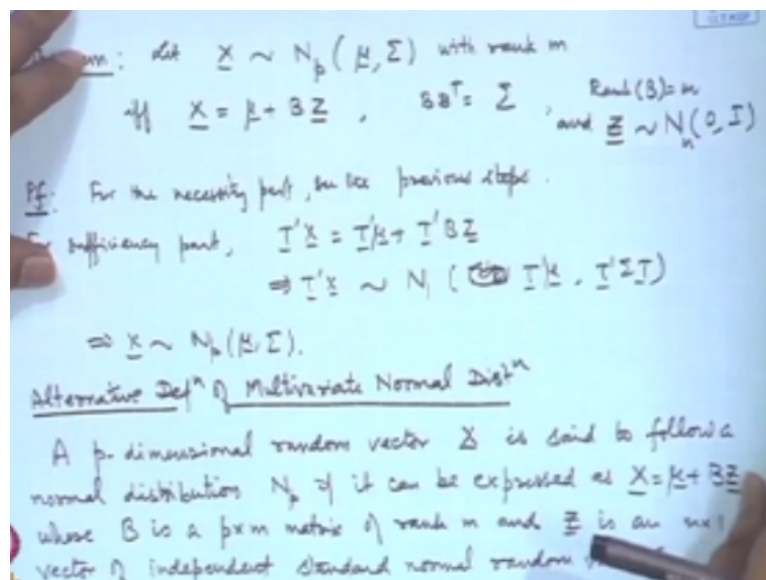 Let X ~ N_p (μ, Σ) with rank m
iff X = μ + BZ , BB^T = Σ , Rank(B) = m
and Z ~ N_m(0, I)
Pf: For the necessity part, see the previous steps.
For sufficiency part, T'X = T'μ + T'BZ
⇒ T'X ~ N_1 ( T'μ, T'ΣT)
⇒ X ~ N_p(μ, Σ).
Alternative Defⁿ of Multivariate Normal Distⁿ
A p-dimensional random vector X is said to follow a
normal distribution N_p if it can be expressed as X = μ + BZ
where B is a p×m matrix of rank m and Z is an m×1
vector of independent standard normal random